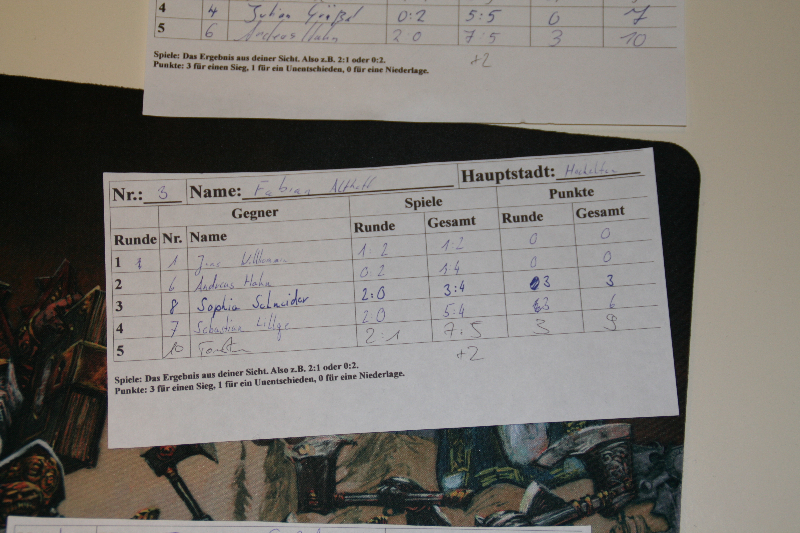 4 4 0:2 5:5 0 7
5 6 Andreas Hahn 2:0 7:5 3 10
Spiele: Das Ergebnis aus deiner Sicht. Also z.B. 2:1 oder 0:2.
Punkte: 3 für einen Sieg, 1 für ein Unentschieden, 0 für eine Niederlage.
+2
Nr.: 3 Name: Fabian Althoff Hauptstadt:
Gegner Spiele Punkte
Runde Nr. Name Runde Gesamt Runde Gesamt
1 1 1:2 1:2 0 0
2 6 Andreas Hahn 0:2 1:4 0 0
3 8 Sophia Schneider 2:0 3:4 3 3
4 7 Sebastian 2:0 5:4 3 6
5 10 2:1 7:5 3 9
+2
Spiele: Das Ergebnis aus deiner Sicht. Also z.B. 2:1 oder 0:2.
Punkte: 3 für einen Sieg, 1 für ein Unentschieden, 0 für eine Niederlage.